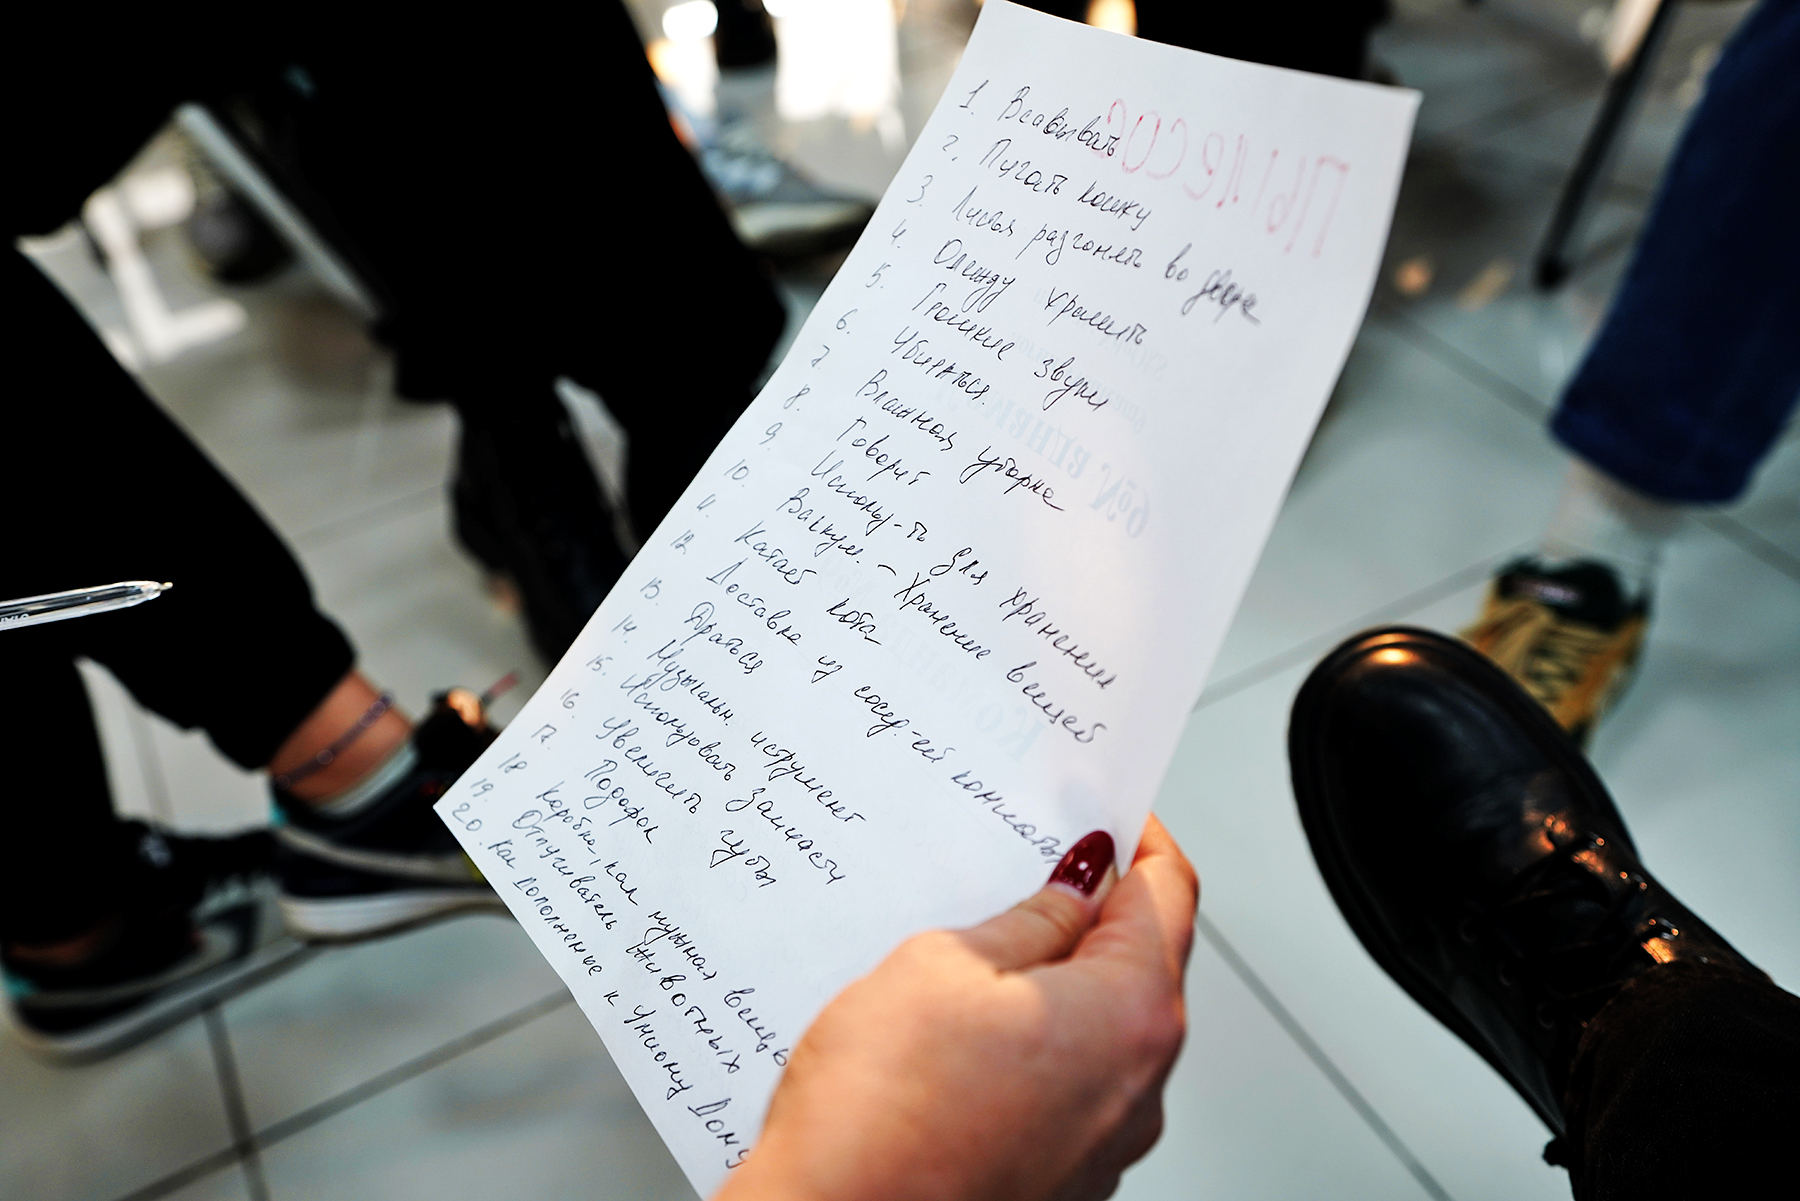 ПЫЛЕСОС
1. Всасывать
2. Пугать кошку
3. Листья разгонять во дворе
4. Одежду хранить
5. Громкие звуки
6. Убираться.
7. Влажная уборка
8. Говорит
9. Использ-ть для хранения
10. Вакуум. – Хранение вещей
11. Катает кота
12. Доставка из сосед-ей комнаты
13. Драться
14. Музыкальн. иструмент
15. Использовать запчасти
16. Увеличить губы
17. Подарок
18 Коробка, как нужная вещь
19. Отпугиватель животных
20. Как дополнение к умному дому